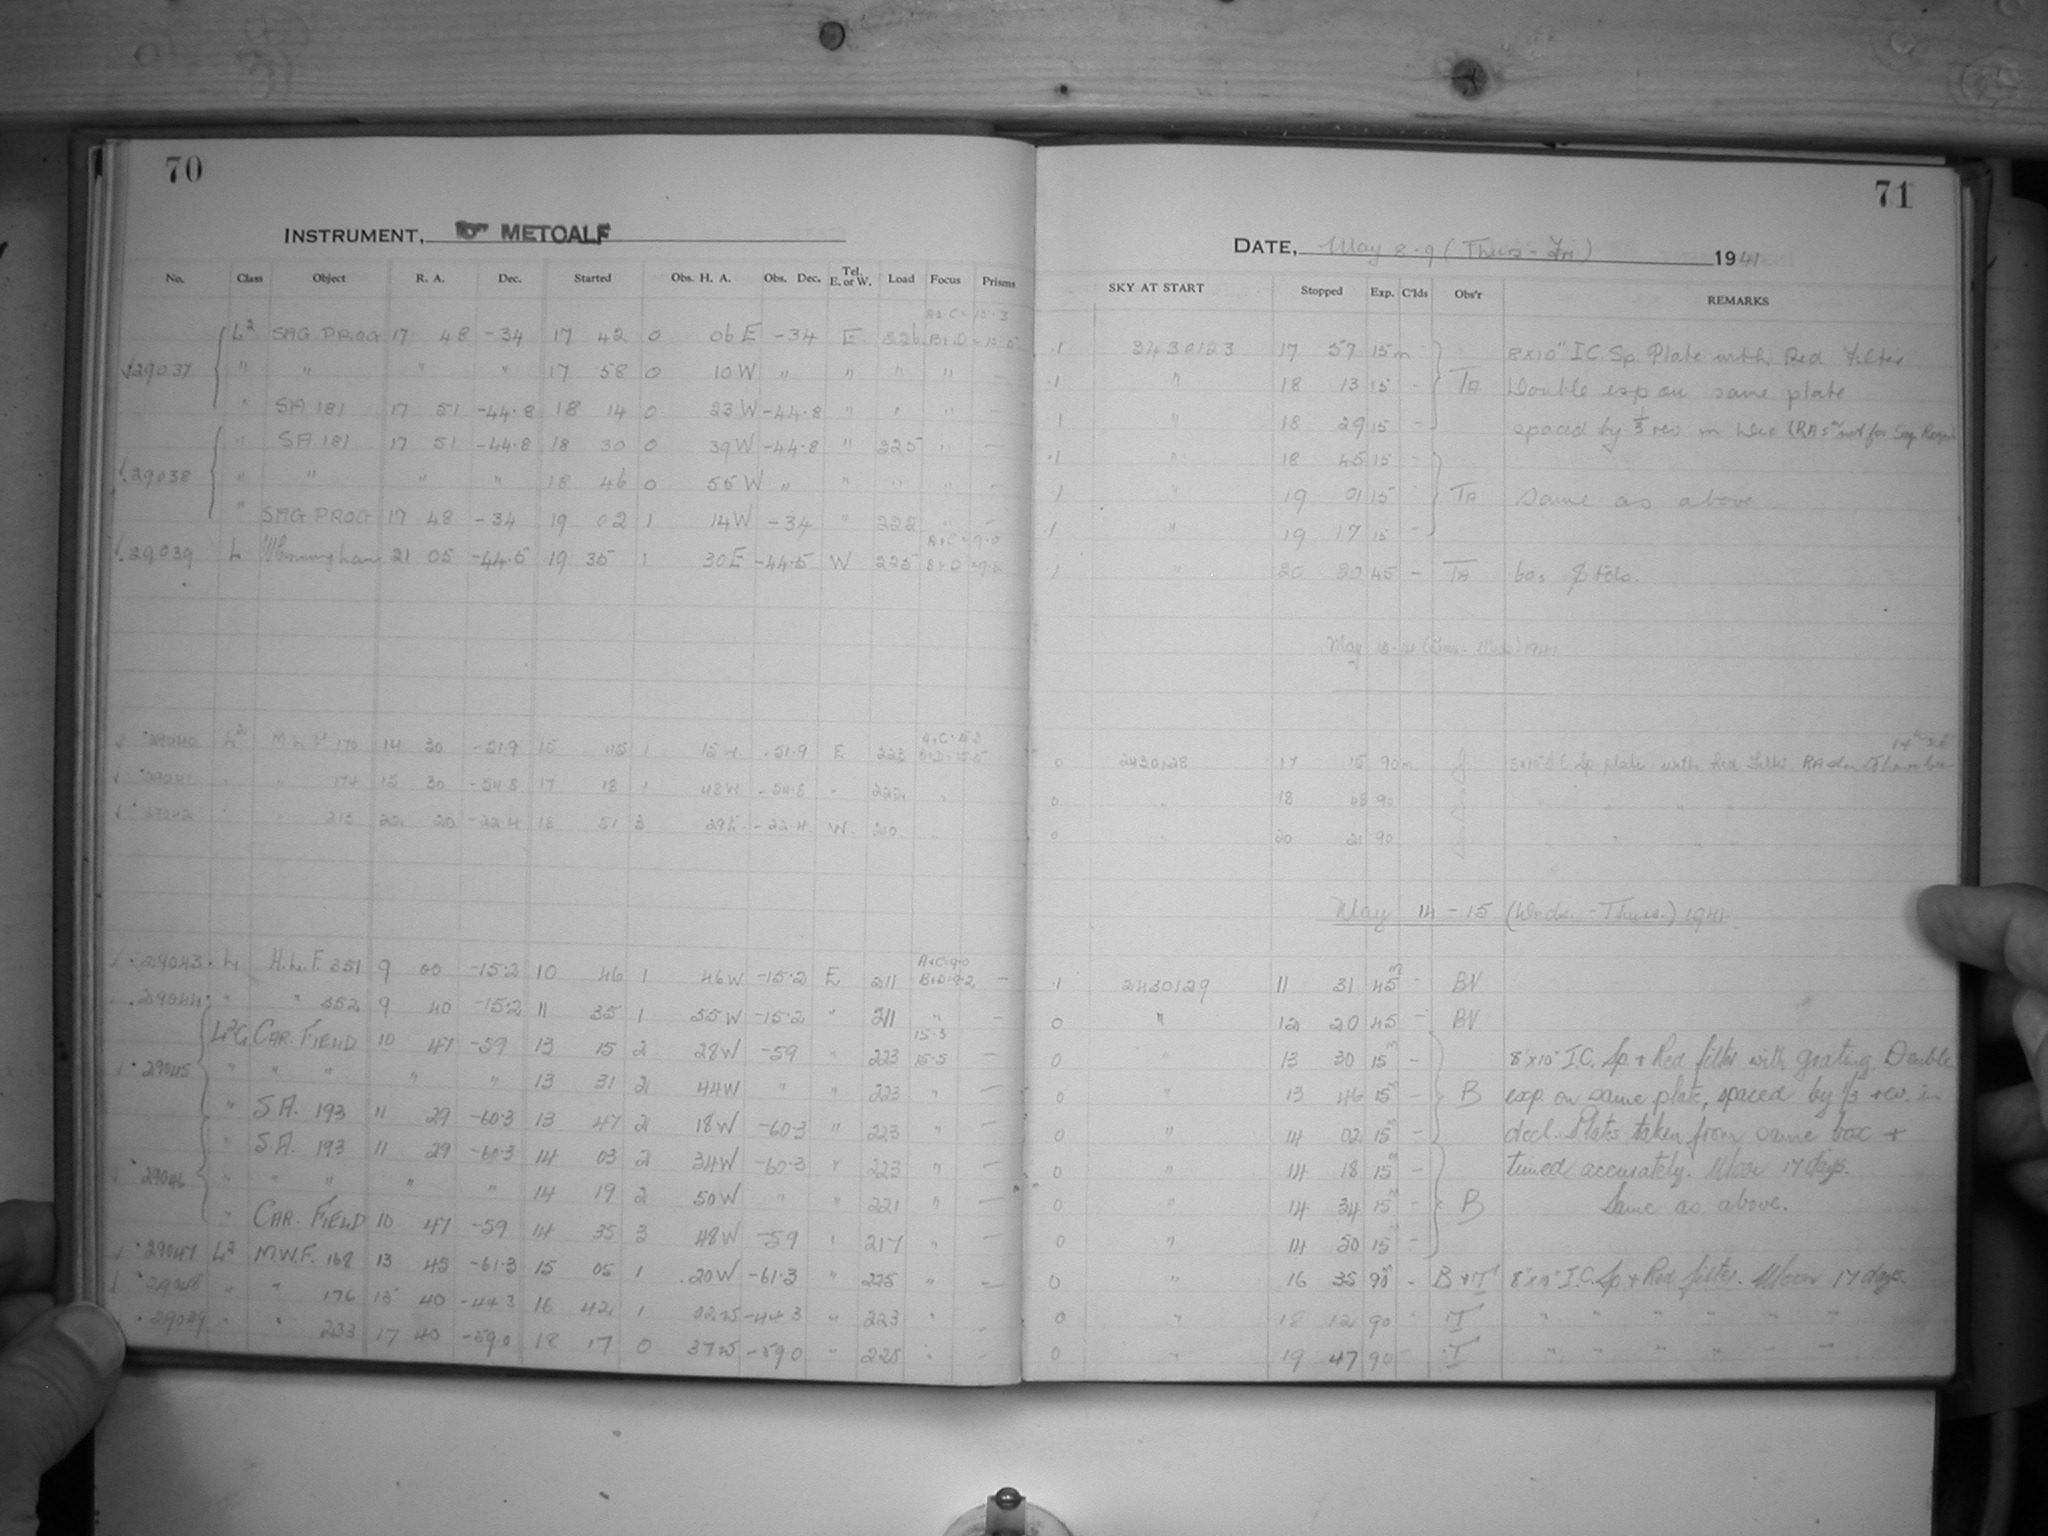 70
INSTRUMENT, 10" METCALF
No. Class Object R. A. Dec. Started Obs. H. A. Obs. Dec. Tel. E. or W. Load Focus Prisms
L² SAG PROG 17 48 -34 17 42 0 06 E -34 E 226
29037 " " " " 17 58 0 10 W " " " " -
" SA 181 17 51 -44.8 18 14 0 23 W -44.8 " " " -
" SA 181 17 51 -44.8 18 30 0 39 W -44.8 " 225 " -
29038 " " " " 18 46 0 55 W " " " " -
" SAG PROG 17 48 -34 19 02 1 14 W -34 " 222 " -
29039 L 21 05 -44.5 19 35 1 30 E -44.5 W 225 A+C = 9.0
29040 L² M.W.F 170 14 30 -51.9 15 45 1 15 W -51.9 E 223
29041 " " 174 15 30 -54.8 17 18 1 48 W -54.8 " 222 "
29042 " " 213 22 20 -22.4 18 51 3 29 E -22.4 W 210 "
29043 L H.L.F. 351 9 00 -15.2 10 46 1 46 W -15.2 E 211 A+C 9.0 B+D 9.2 -
29044 " " 352 9 40 -15.2 11 35 1 55 W -15.2 " 211 " -
L²G CAR. FIELD 10 47 -59 13 15 2 28 W -59 " 223 15.3 15.5 -
29045 " " " " " 13 31 2 44 W " " 223 " -
" S.A. 193 11 29 -60.3 13 47 2 18 W -60.3 " 223 " -
" S.A. 193 11 29 -60.3 14 03 2 34 W -60.3 " 223 " -
29046 " " " " " 14 19 2 50 W " " 221 " -
" CAR. FIELD 10 47 -59 14 35 3 48 W -59 " 217 " -
29047 L² M.W.F. 168 13 45 -61.3 15 05 1 20 W -61.3 " 225 " -
29048 " " 176 15 40 -44.3 16 42 1 02 W -44.3 " 223 " -
29049 " " 233 17 40 -59.0 18 17 0 37 W -59.0 " 225 " -
71
DATE, May 8-9 (Thurs - Fri) 1941
SKY AT START Stopped Exp. C'lds Obs'r REMARKS
.1 2430123 17 57 15m 8x10" I.C. Sp. Plate with Red Filter
.1 " 18 13 15 - TA Double exp on same plate
.1 " 18 29 15 - spaced by 1/3 rev in Dec
.1 " 18 45 15 -
.1 " 19 01 15 - TA Same as above
.1 " 19 17 15 -
.1 " 20 20 45 - TA
May 13-14 (Tues - Wed) 1941
0 2430128 17 15 90m 8x10" I.C. Sp plate with Red Filter.
0 " 18 48 90 " " " "
0 " 20 21 90 " " " "
May 14-15 (Weds. - Thurs.) 1941
.1 2430129 11 31 45m - BV
0 " 12 20 45 - BV
0 " 13 30 15m - 8"x10" I.C. Sp. + Red filter with grating. Double
0 " 13 46 15m - B exp. on same plate, spaced by 1/3 rev. in
0 " 14 02 15m - decl. Plates taken from same box +
0 " 14 18 15m - timed accurately. Moon 17 days.
0 " 14 34 15m - B Same as above.
0 " 14 50 15m -
0 " 16 35 90m - B+T 8"x10" I.C. Sp + Red filter. Moon 17 days.
0 " 18 12 90 T " " " " " "
0 " 19 47 90 T " " " " " "